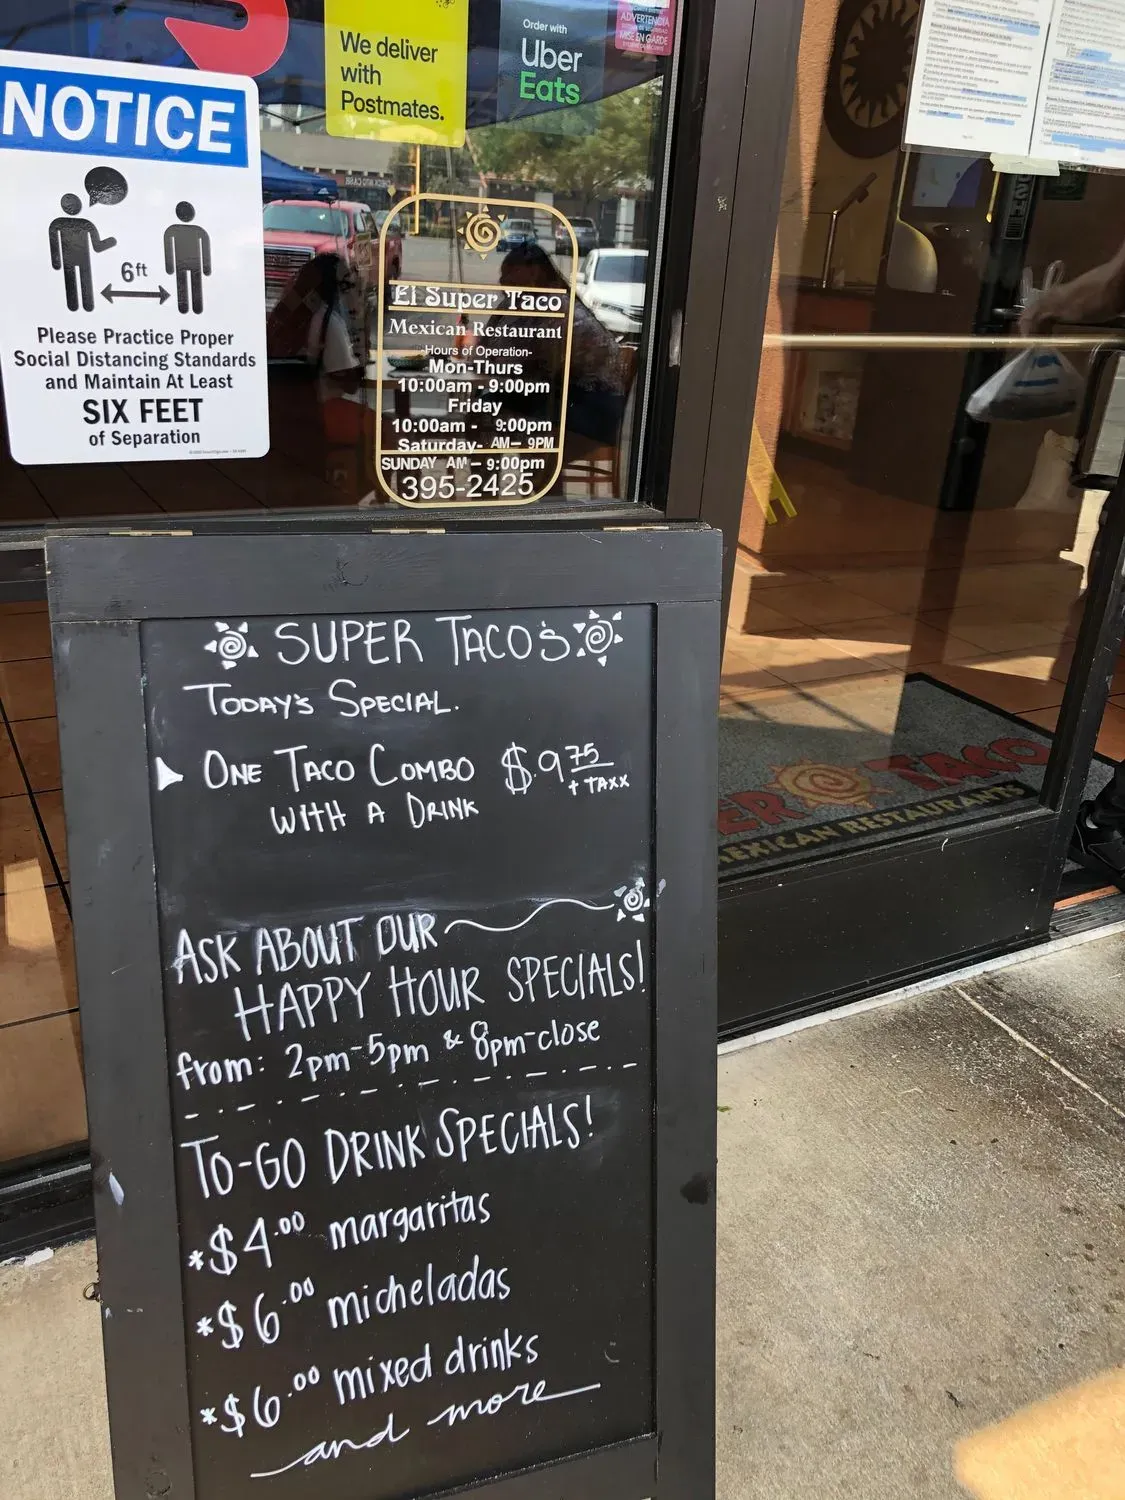 NOTICE
6ft
Please Practice Proper
Social Distancing Standards
and Maintain At Least
SIX FEET
of Separation
We deliver
with
Postmates.
Order with
Uber
Eats
ADVERTENCIA
MISE EN GARDE
El Super Taco
Mexican Restaurant
-Hours of Operation-
Mon-Thurs
10:00am - 9:00pm
Friday
10:00am - 9:00pm
Saturday- AM- 9PM
SUNDAY AM - 9:00pm
395-2425
SUPER TACO'S
TODAY'S SPECIAL.
ONE TACO COMBO $.9 75
+ TAXX
WITH A DRINK
ASK ABOUT OUR
HAPPY HOUR SPECIALS!
from: 2pm-5pm & 8pm-close
TO-GO DRINK SPECIALS!
*$4.00 margaritas
*$6.00 micheladas
*$6.00 mixed drinks
and more
ER TACO
MEXICAN RESTAURANTS